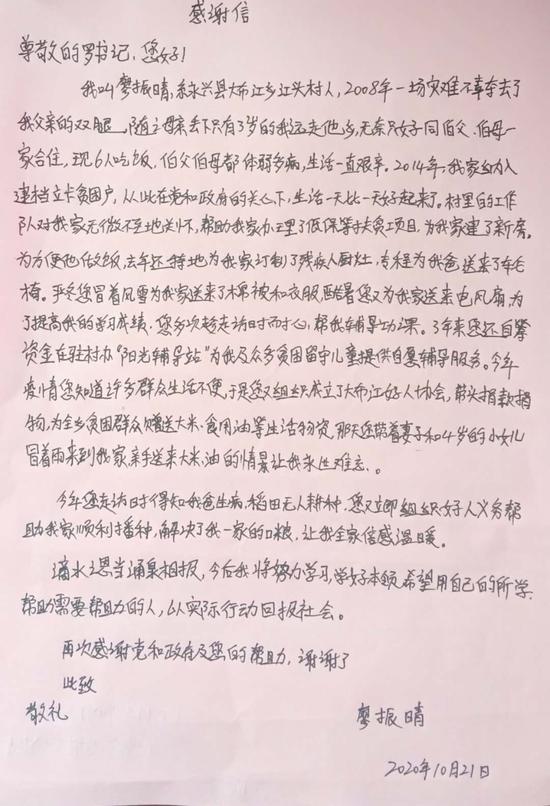 感谢信
尊敬的罗书记，您好！
我叫廖振晴，系永兴县大布江乡江头村人，2008年一场灾难不幸夺去了
我父亲的双腿，随之母亲丢下只有3岁的我远走他乡，无奈只好同伯父、伯母一
家合住，现6人吃饭，伯父伯母都体弱多病，生活一直艰辛。2014年，我家纳入
建档立卡贫困户，从此在党和政府的关心下，生活一天比一天好起来了。村里的工作
队对我家无微不至地关怀，帮助我家办理了低保等扶贫项目，为我家建了新房。
为方便他做饭，去年还特地为我家订制了残疾人厨灶，专程为我爸送来了车毛
椅。严冬您冒着风雪为我家送来了棉被和衣服，酷暑您又为我家送来电风扇，为
了提高我的学习成绩，您多次趁走访时而才心，帮我辅导功课。3年来您还自筹
资金在驻村办“阳光辅导站”为我及众多贫困留守儿童提供自愿辅导服务。今年
疫情您知道许多群众生活不便，于是您又组织成立了大布江好人协会，带头捐款捐
物，为全乡贫困群众赠送大米、食用油等生活物资，那天您带着妻子和4岁的小女儿
冒着雨来到我家，亲手送来大米、油的情景让我永生难忘、。
今年您走访时得知我爸生病，稻田无人耕种，您又立即组织好人义务帮
助我家顺利播种，解决了我一家的口粮，让我全家倍感温暖。
滴水之恩当涌泉相报，今后我将努力学习，学好本领，希望用自己的所学
帮助需要帮助的人，以实际行动回报社会。
再次感谢党和政府及您的帮助，谢谢了
此致
敬礼
廖振晴
2020年10月21日